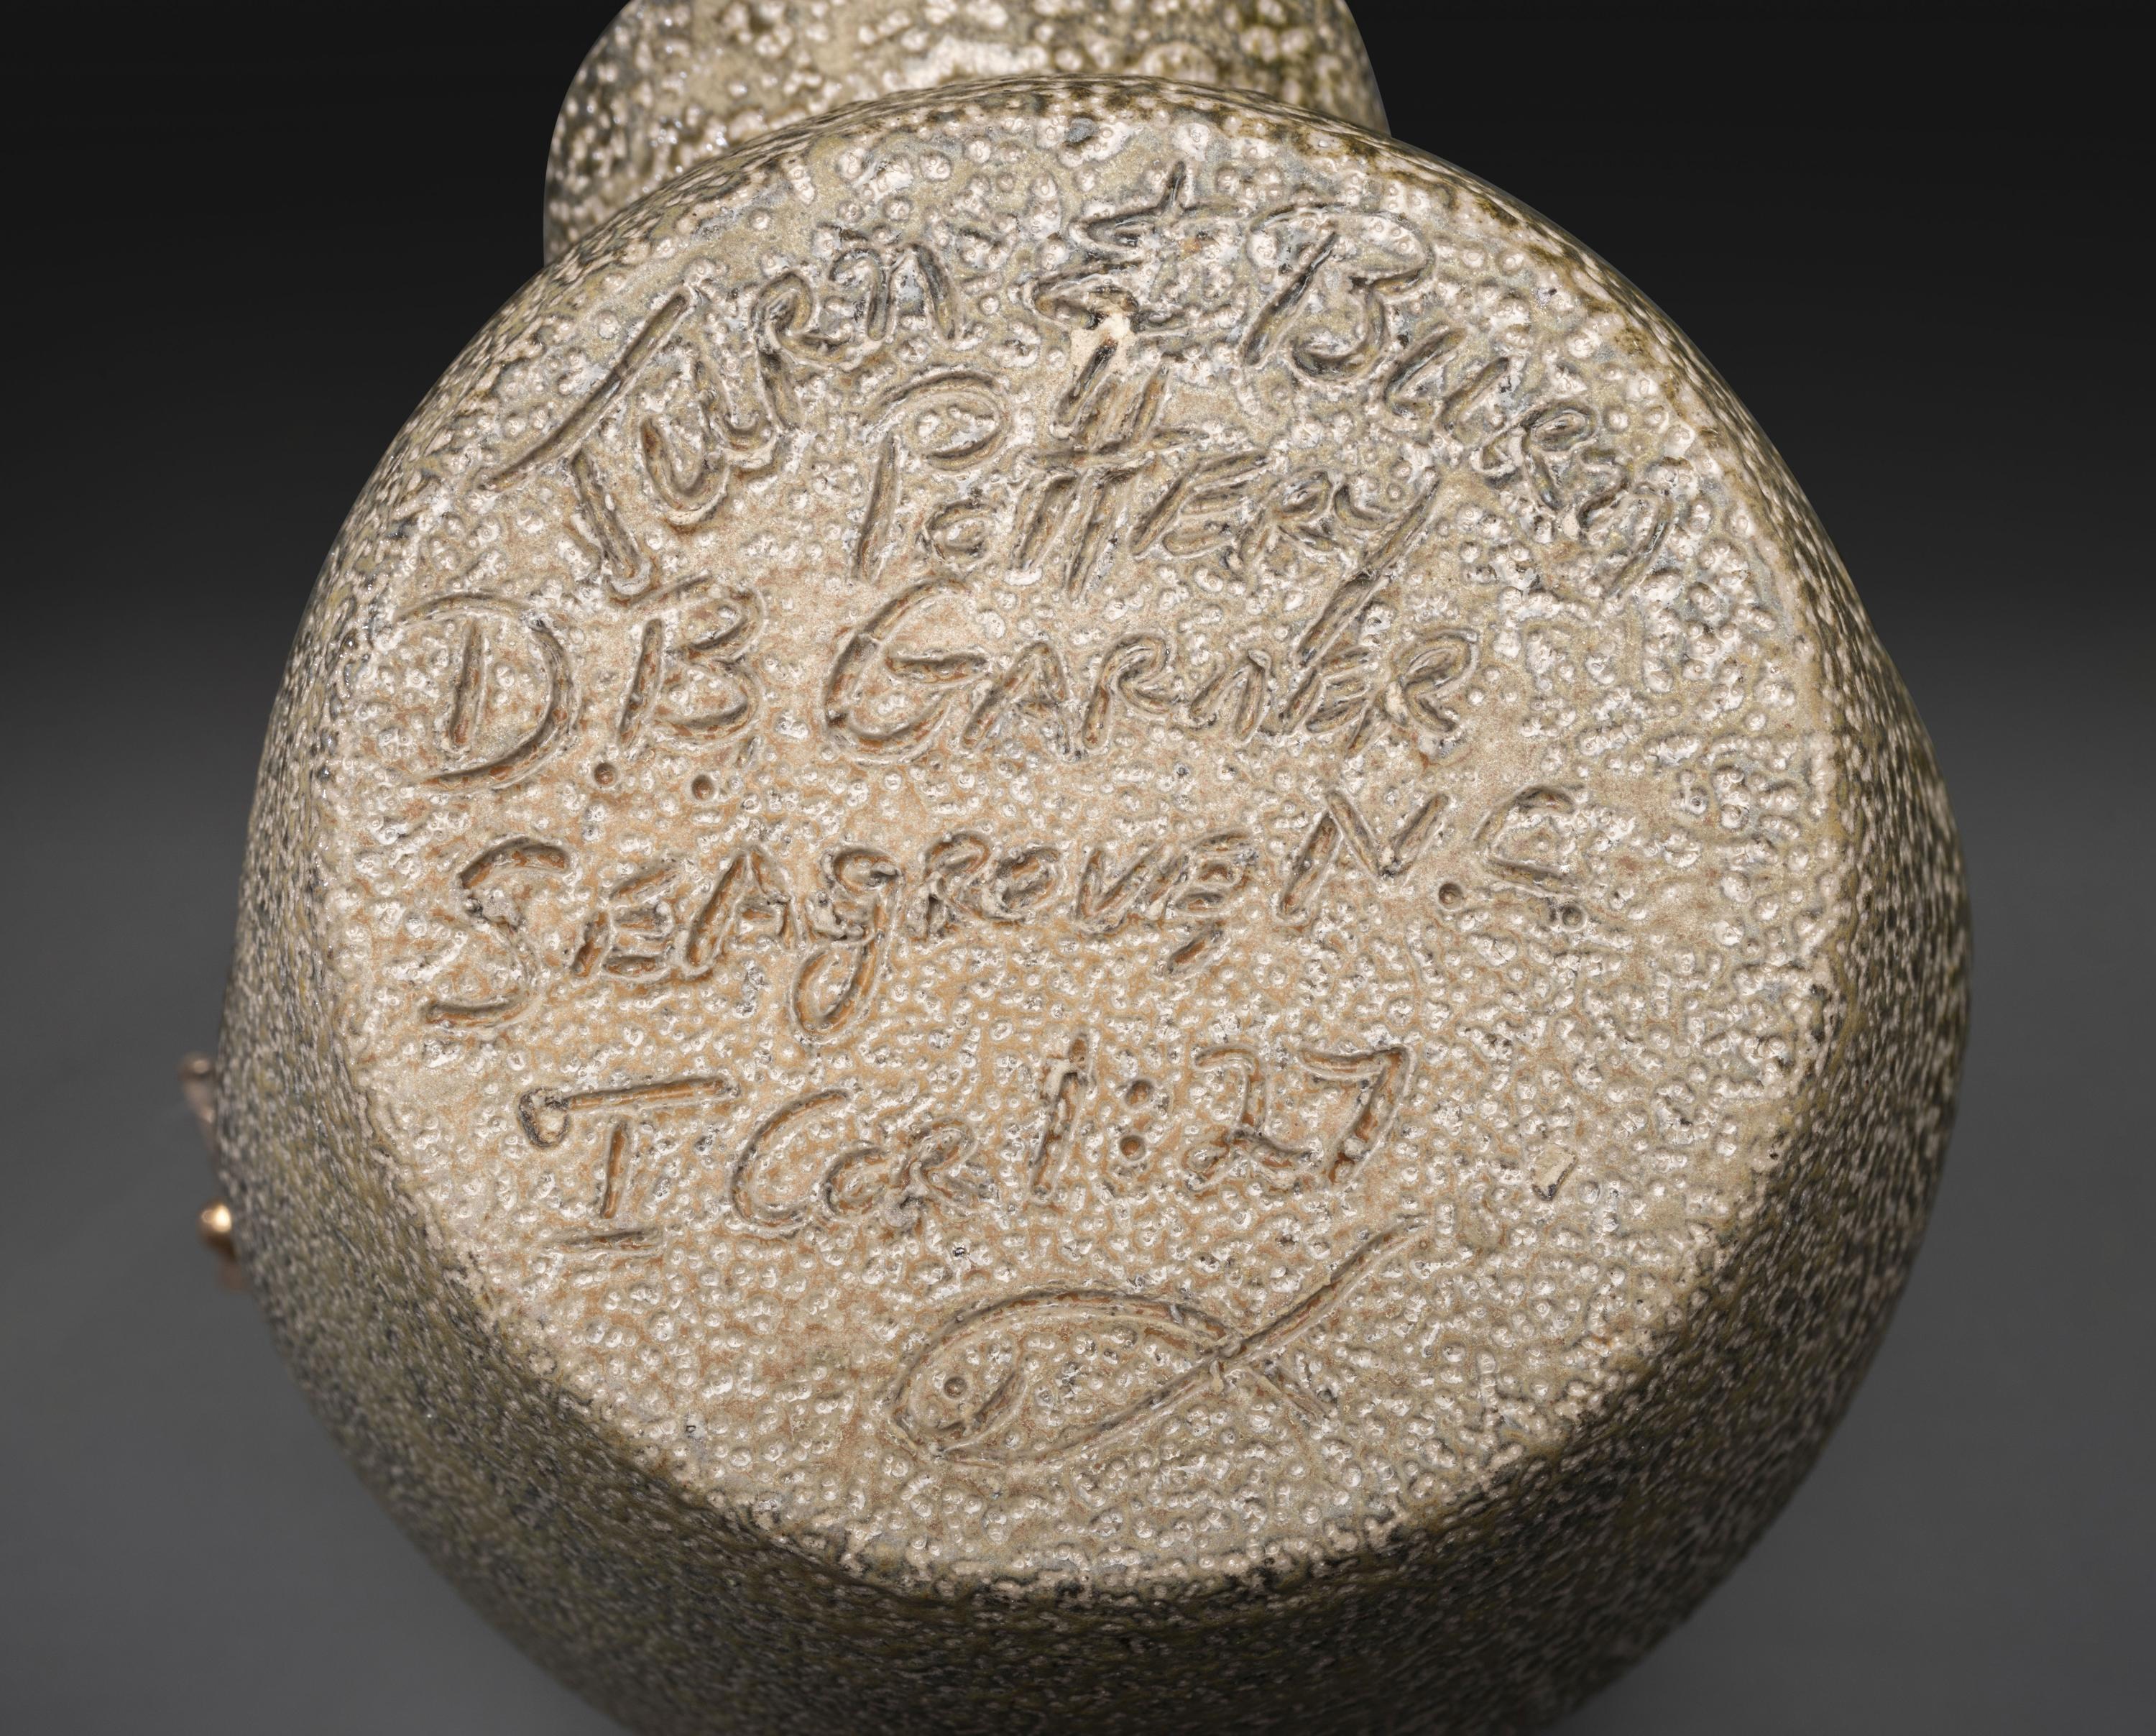 Turn & Burn
Pottery
D.B. GARNER
SEAgROVE, N.C.
I Cor 1:27